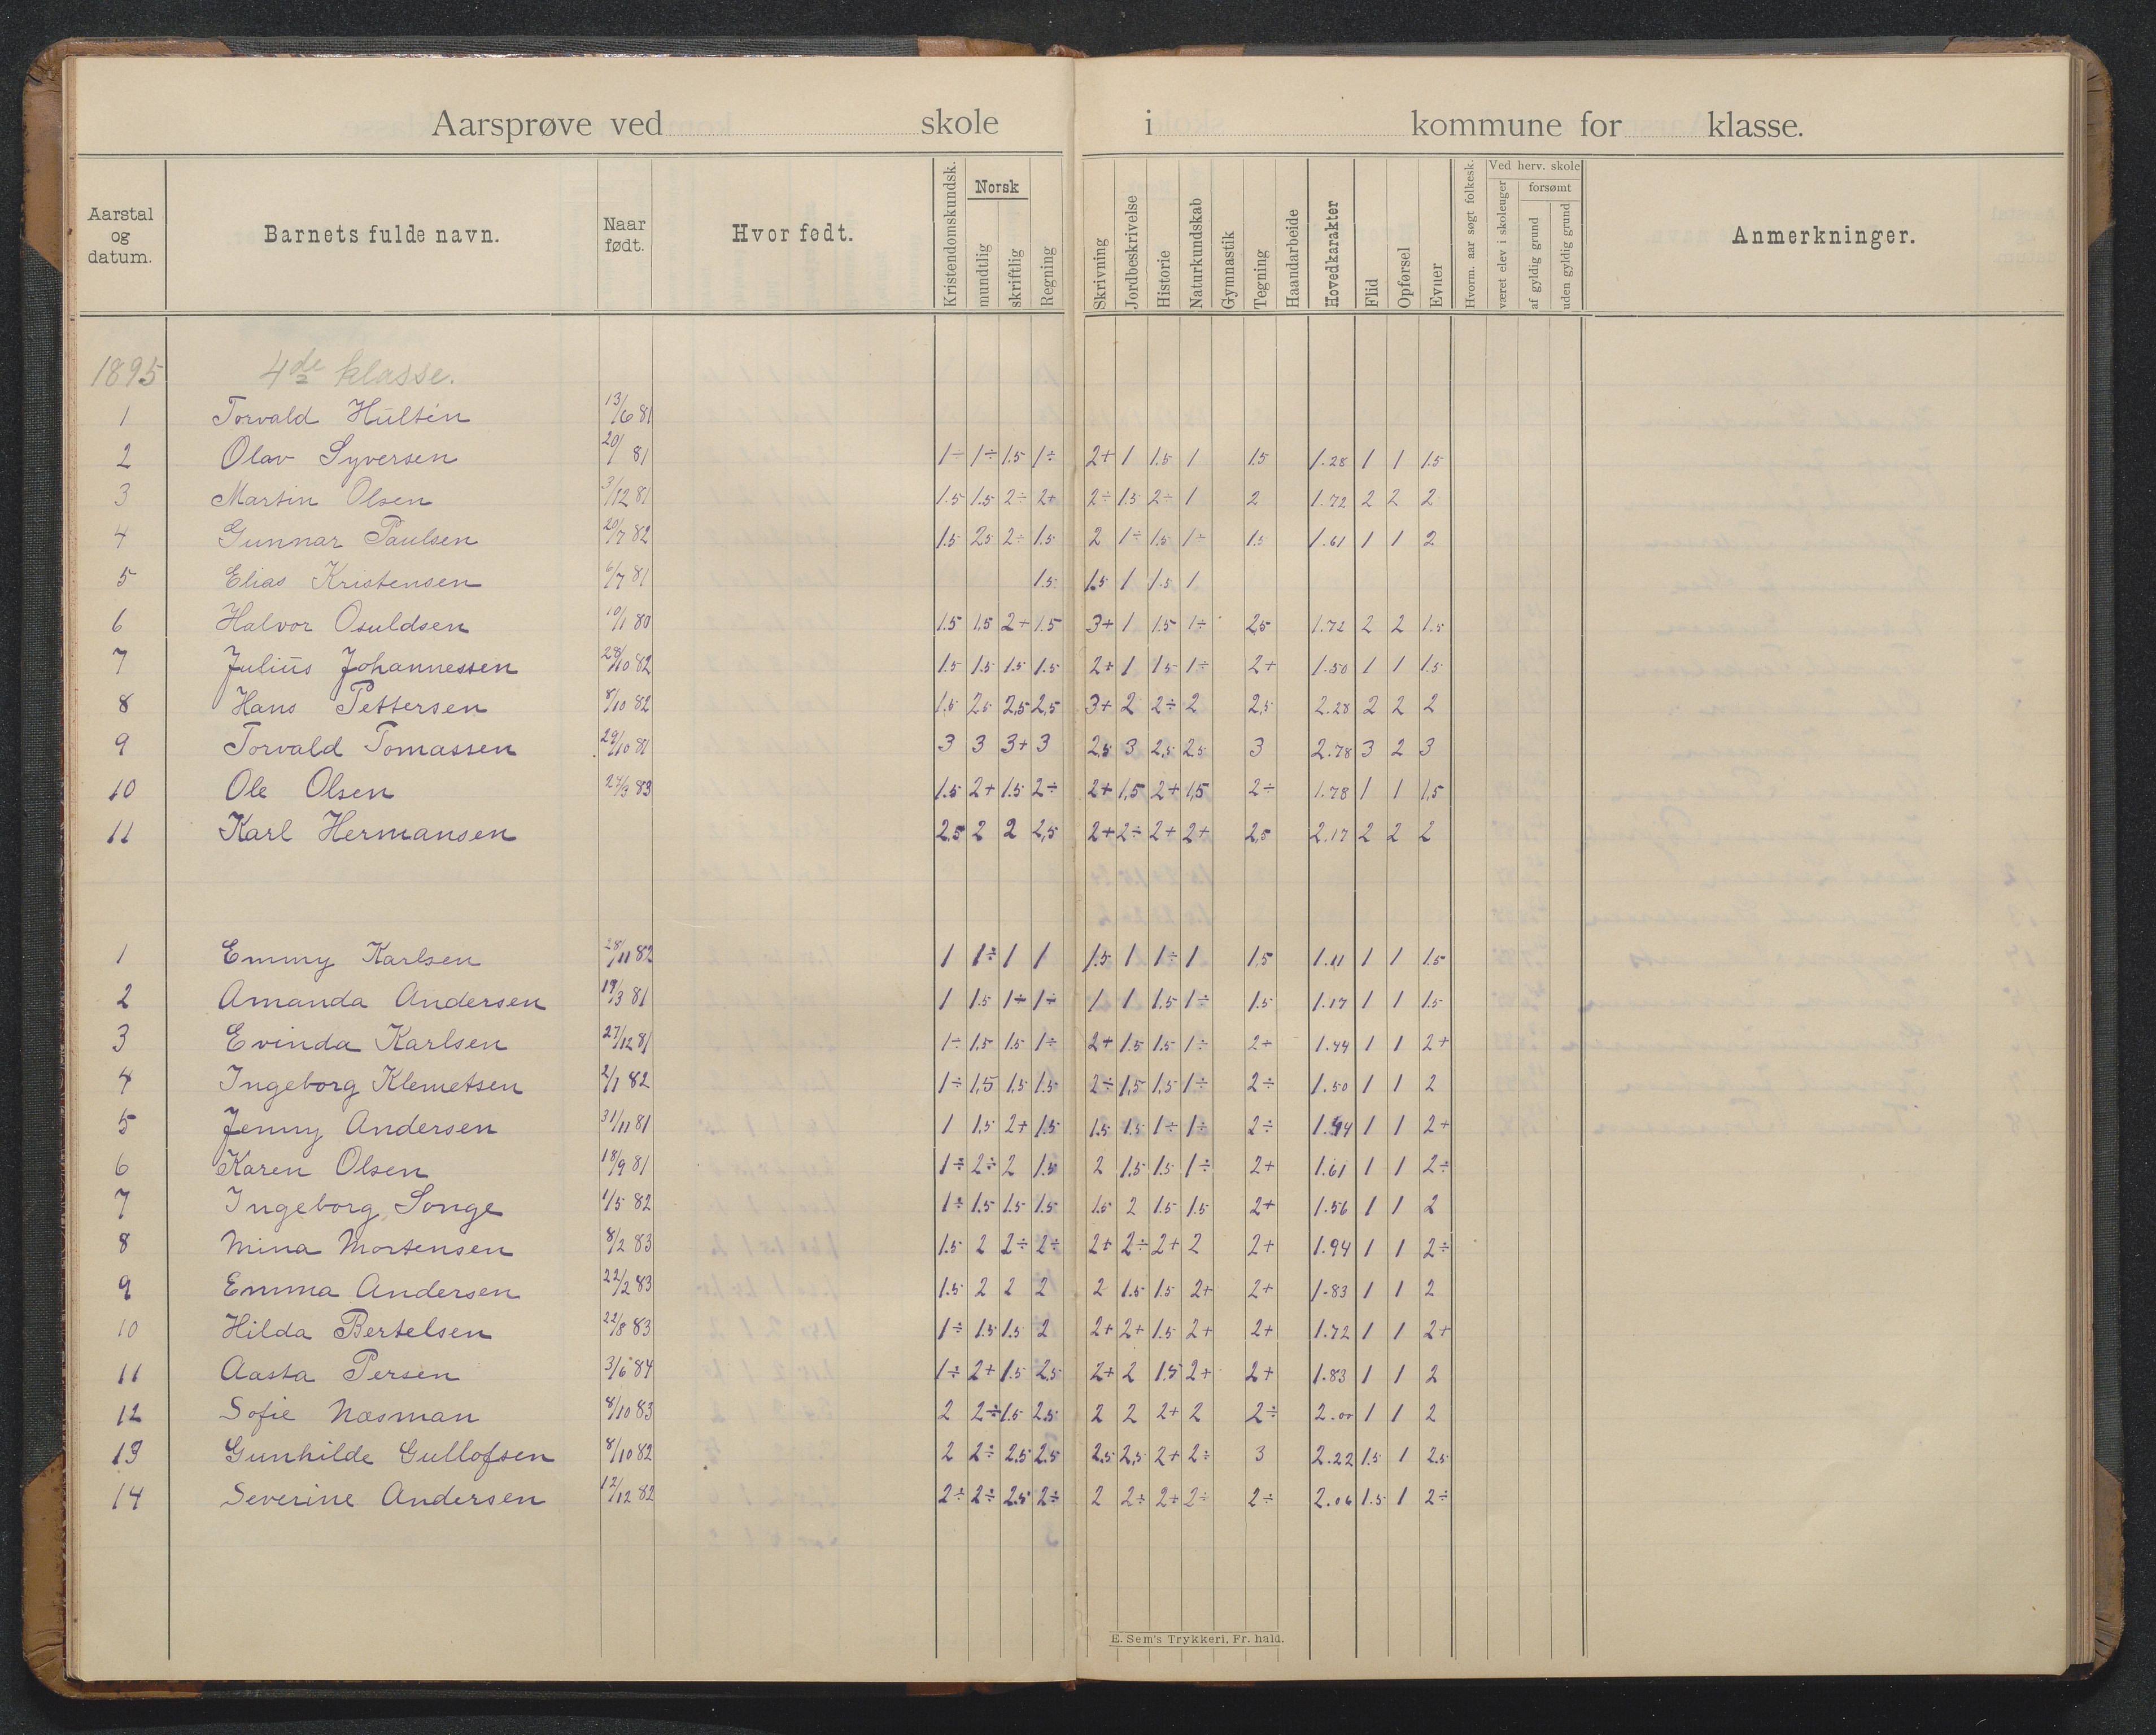 Aarsprøve ved skole i kommune for klasse.
Aarstal og datum. Barnets fulde navn. Naar født. Hvor født. Kristendomskundsk. Norsk mundtlig skriftlig Regning Skrivning Jordbeskrivelse Historie Naturkundskab Gymnastik Tegning Haandarbeide Hovedkarakter Flid Opførsel Evner Hvorm. aar søgt folkesk. Ved herv. skole været elev i skoleuger forsømt af gyldig grund uden gyldig grund Anmerkninger.
1895 4de klasse.
1 Torvald Hultén 13/6 81
2 Olav Syversen 20/ 81 1÷ 1÷ 1.5 1÷ 2+ 1 1.5 1 1.5 1.28 1 1 1.5
3 Martin Olsen 3/12 81 1.5 1.5 2÷ 2+ 2÷ 1.5 2÷ 1 2 1.72 2 2 2
4 Gunnar Paulsen 20/7 82 1.5 2.5 2÷ 1.5 2 1÷ 1.5 1÷ 1.5 1.61 1 1 2
5 Elias Kristensen 6/7 81 1.5 1.5 1 1.5 1
6 Halvor Osuldsen 10/1 80 1.5 1.5 2+ 1.5 3+ 1 1.5 1÷ 2,5 1.72 2 2 1.5
7 Julius Johannessen 28/10 82 1.5 1.5 1.5 1.5 2+ 1 1.5 1÷ 2+ 1.50 1 1 1.5
8 Hans Pettersen 8/10 82 1,5 2.5 2,5 2,5 3+ 2 2÷ 2 2,5 2.28 2 2 2
9 Torvald Tomassen 29/10 81 3 3 3+ 3 2,5 3 2,5 2.5 3 2.78 3 2 3
10 Ole Olsen 24/3 83 1.5 2+ 1.5 2÷ 2+ 1,5 2+ 1,5 2÷ 1.78 1 1 1,5
11 Karl Hermansen 2.5 2 2 2,5 2+ 2÷ 2+ 2+ 2,5 2.17 2 2 2
1 Emmy Karlsen 28/11 82 1 1÷ 1 1 1.5 1 1÷ 1 1,5 1.11 1 1 1.5
2 Amanda Andersen 19/3 81 1 1.5 1÷ 1÷ 1 1 1.5 1÷ 1.5 1.17 1 1 1.5
3 Evinda Karlsen 27/12 81 1÷ 1.5 1.5 1÷ 2+ 1.5 1.5 1÷ 2+ 1.44 1 1 2+
4 Ingeborg Klemetsen 2/1 82 1÷ 1,5 1,5 1.5 2÷ 1,5 1,5 1÷ 2÷ 1.50 1 1 2
5 Jenny Andersen 31/11 81 1 1.5 2+ 1.5 1.5 1.5 1÷ 1÷ 2÷ 1.44 1 1 2+
6 Karen Olsen 18/9 81 1÷ 2÷ 2 1.5 2 1.5 1.5 1÷ 2+ 1.61 1 1 2÷
7 Ingeborg Songe 1/5 82 1÷ 1.5 1.5 1.5 1.5 2 1.5 1.5 2+ 1.56 1 1 2
8 Mina Mortensen 8/2 83 1.5 2 2÷ 2÷ 2+ 2÷ 2+ 2 2+ 1.94 1 1 2÷
9 Emma Andersen 22/2 83 1.5 2 2 2 2 1.5 1.5 2+ 2+ 1.83 1 1 2
10 Hilda Bertelsen 22/8 83 1÷ 1.5 1.5 2 2+ 2+ 1.5 2+ 2+ 1.72 1 1 2+
11 Aasta Persen 3/6 84 1÷ 2+ 1.5 2,5 2+ 2 1.5 2+ 2+ 1.83 1 1 2
12 Sofie Næsman 8/10 83 2 2÷ 1.5 2.5 2 2 2+ 2 2÷ 2.00 1 1 2
13 Gunhilde Gullofsen 8/10 82 2 2÷ 2.5 2.5 2.5 2,5 2+ 2÷ 3 2.22 1.5 1 2.5
14 Severine Andersen 12/12 82 2÷ 2÷ 2.5 2÷ 2 2÷ 2+ 2÷ 2÷ 2.06 1.5 1 2÷
E. Sem's Trykkeri, Fr. hald.